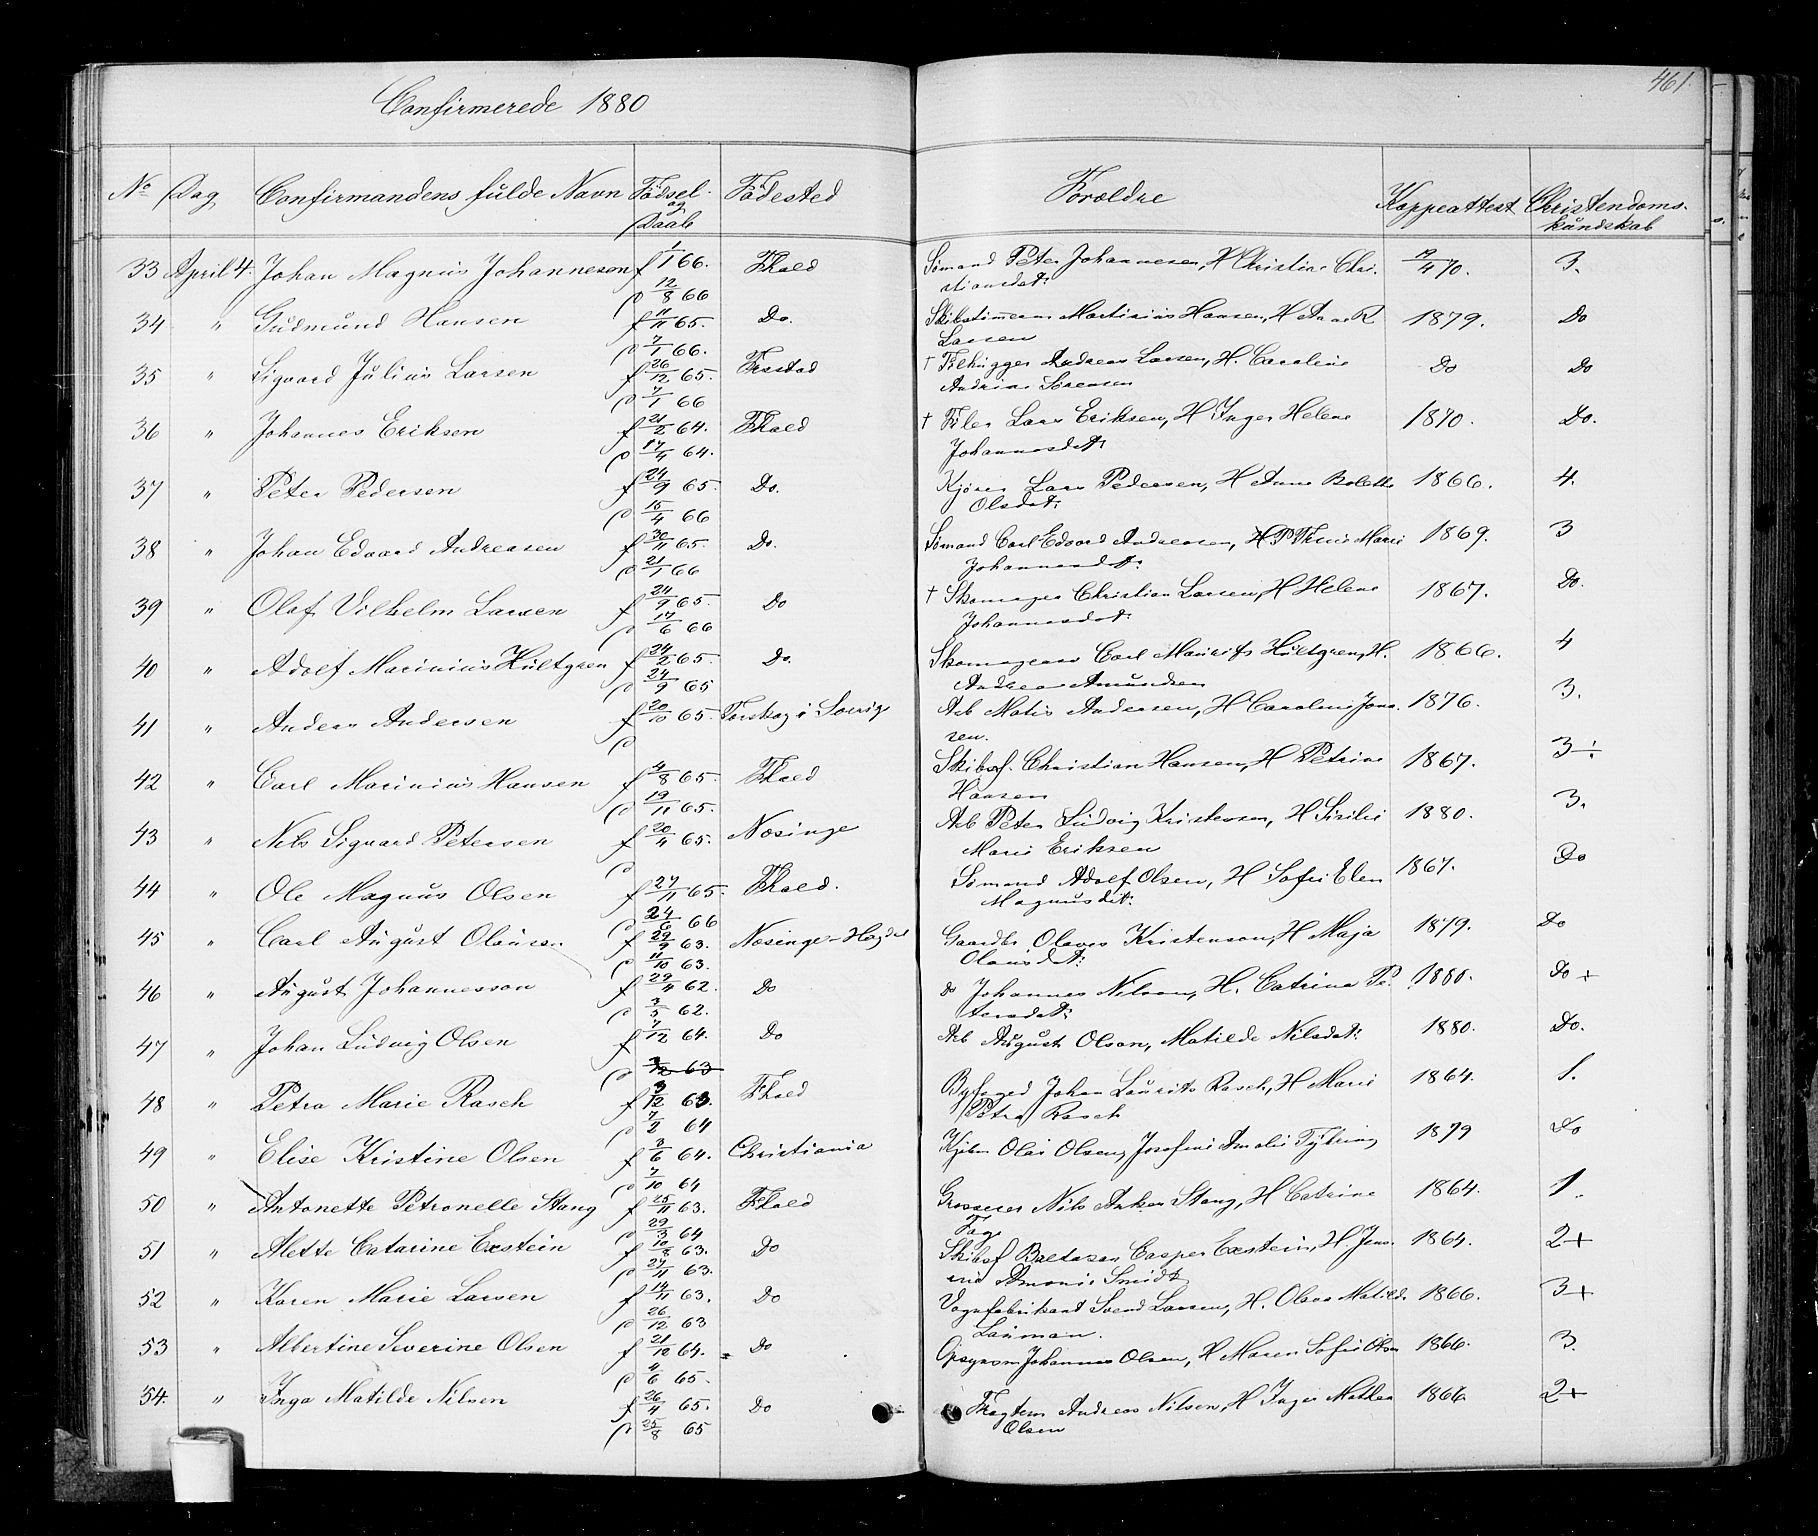 461
Confirmerede 1880
No Dag Confirmandens fulde Navn Fødsel og Daab Fødested Forældre Koppeattest Christendoms-kundskab
33 April 4. Johan Magnus Johannesen f 1/1 66. Fhald Sømand Peter Johannesen, H Christine Chri-
d 12/8 66 stiansdat: 19/4 70. 3.
34 " Gudmund Hansen f 11/11 65. Do. Skibstømmerm Martinius Hansen, H Anne R 1879. Do
d 7/1 66. Larsen
35 " Sigvard Julius Larsen f 26/12 65. Frstad † Filhugger Andreas Larsen, H. Caroline Do Do
d 7/1 66 Andrine Sørensen
36 " Johannes Eriksen f 21/2 64. Fhald † Filer Lars Eriksen, H Inger Helene 1870. Do.
d 17/4 64. Johannesdat
37 " Peter Pedersen f 24/9 65. Do. Kjører Lars Pedersen, H Anne Bolette 1866. 4.
d 15/4 66 Olsdat:
38 " Johan Edvard Andreasen f 30/11 65. Do. Sømand Carl Edvard Andreasen, H P Marie 1869. 3
d 21/1 66 Johannesdat:
39 " Olaf Vilhelm Larsen f 24/9 65. Do † Skomager Christian Larsen, H Helene 1867. Do.
d 17/6 66 Johannesdat:
40 " Adolf Marinius Hultgren f 24/2 65. Do. Skomagersv Carl Maurits Hultgren, H. 1866. 4
d 24/9 65 Andrea Amundsen
41 " Anders Andersen f 20/10 65. Torskog i Sverig Arb Matis Andersen, H Caroline Jons- 1876. 3.
d sen.
42 " Carl Marinius Hansen f 4/8 65. Fhald Skibsf. Christian Hansen, H Petrine 1867. 3÷
d 19/11 65. Hansen
43 " Nils Sigvard Petersen f 20/4 65. Næsinge Arb Peter Ludvig Kristensen, H Sisilie 1880. 3.
d Marie Eriksen
44 " Ole Magnus Olsen f 27/11 65. Fhald. Sømand Adolf Olsen, H Sofie Elen 1867. Do
d 24/6 66 Magnusdat:
45 " Carl August Olausen f 29/9 63. Næsinge-Hogdal Gaardbr Olaves Kristenson, H Maja 1879. Do
d 11/10 63. Olausdat:
46 " August Johannesson f 29/4 62. Do Do Johannes Nilson, H. Catrina Pe- 1880. Do +
d 3/5 62. tersdat:
47 " Johan Ludvig Olsen f 7/12 64. Do Arb August Olson, Matilde Nilsdat: 1880. Do.
d 3/12 63
48 " Petra Marie Rasch f 3/12 63. Fhald Byfoged Johan Laurits Rasch, H Marie 1864. 1.
d 7/2 64 Petra Rasch
49 " Elise Kristine Olsen f 3/6 64. Christiania Kjøbm Olai Olsen, Josefine Amalie Tybring 1879 Do
d 7/10 64
50 " Antonette Petronelle Stang f 25/11 63. Fhald Grosserer Nils Anker Stang, H Catrine 1864. 1.
d 29/3 64 Fage
51 " Alette Catarine Exstein f 10/8 63. Do Skibsf Baltasar Casper Exstein, H. Jens- 1864. 2+
d 27/11 63. ine Amonie Smidt
52 " Karen Marie Larsen f 14/11 63. Do Vognfabrikant Svend Larsen, H. Olava Matilde 1866. 3+
d 26/12 63 Lauman.
53 " Albertine Severine Olsen f 21/10 64. Do Opsynsm Johannes Olsen, H Maren Sofie Olsen 1866. 3.
d 4/6 65.
54. " Inga Matilde Nilsen f 26/4 65. Do Fragtem Andreas Nilsen, H Inger Mathea 1866 2+
d 25/8 65 Olsen